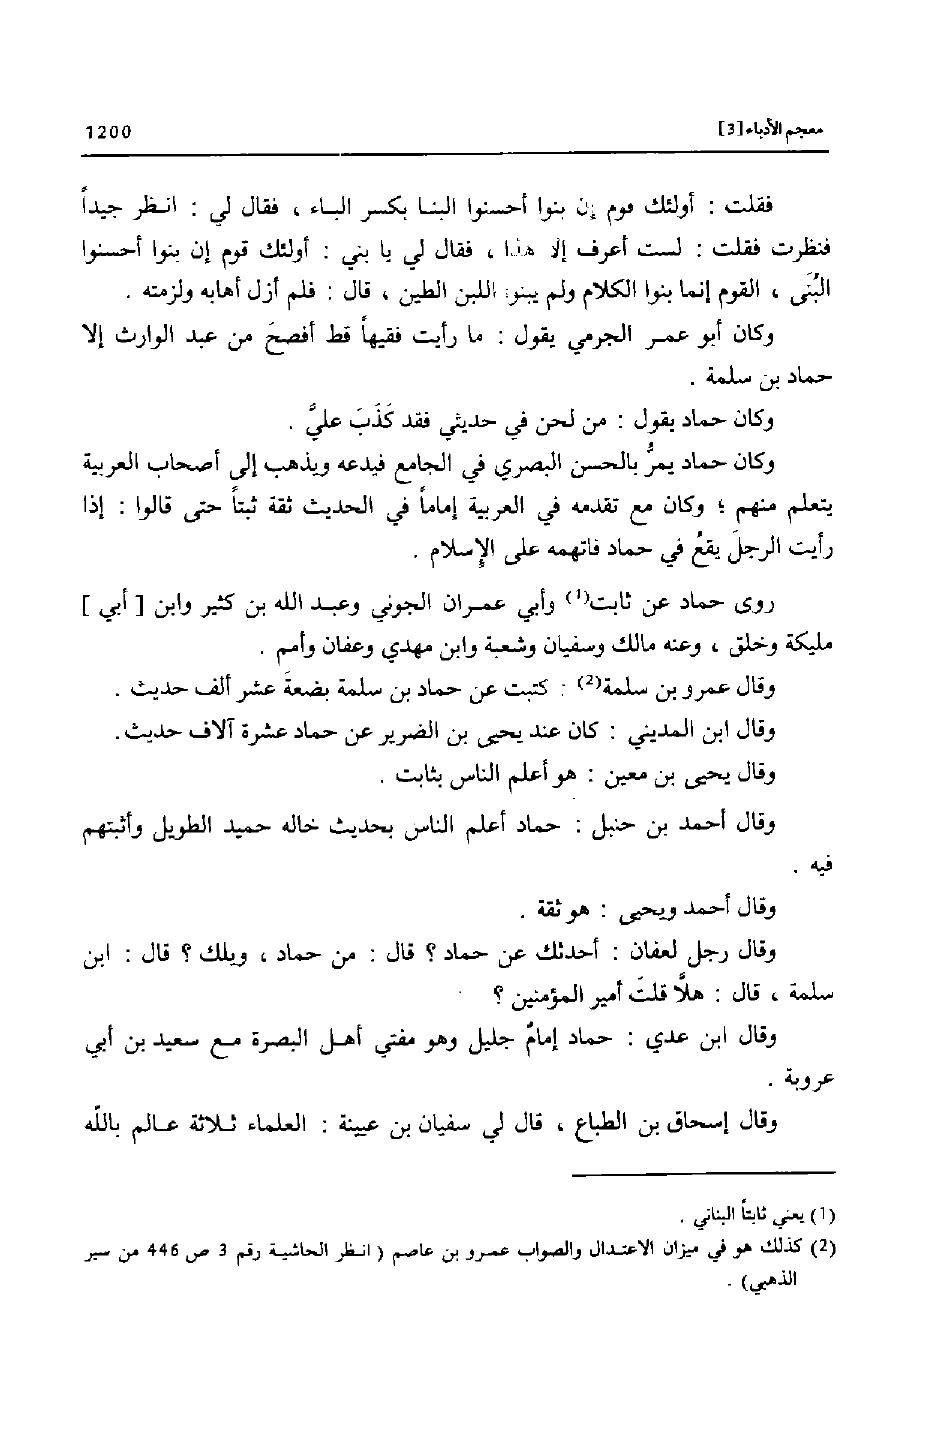 معجم الأدباء [3]
1200
فقلت : أولئك قوم إن بنوا أحسنوا البنا بكسر الباء ، فقال لي : انظر جيداً
فنظرت فقلت : لست أعرف إلا هذا ، فقال لي يا بني : أولئك قوم إن بنوا أحسنوا
البُنَى ، القوم إنما بنوا الكلام ولم يبنوا اللبن الطين ، قال : فلم أزل أهابه ولزمته .
وكان أبو عمر الجرمي يقول : ما رأيت فقيهاً قط أفصحَ من عبد الوارث إلا
حماد بن سلمة .
وكان حماد يقول : من لحن في حديثي فقد كَذَبَ عليَّ .
وكان حماد يمرُّ بالحسن البصري في الجامع فيدعه ويذهب إلى أصحاب العربية
يتعلم منهم ؛ وكان مع تقدمه في العربية إماماً في الحديث ثقة ثبتاً حتى قالوا : إذا
رأيت الرجلَ يقعُ في حماد فاتهمه على الإسلام .
روى حماد عن ثابت(1) وأبي عمران الجوني وعبد الله بن كثير وابن [ أبي ]
مليكة وخلق ، وعنه مالك وسفيان وشعبة وابن مهدي وعفان وأمم .
وقال عمرو بن سلمة(2) : كتبت عن حماد بن سلمة بضعةَ عشر ألف حديث .
وقال ابن المديني : كان عند يحيى بن الضرير عن حماد عشرة آلاف حديث .
وقال يحيى بن معين : هو أعلم الناس بثابت .
وقال أحمد بن حنبل : حماد أعلم الناس بحديث خاله حميد الطويل وأثبتهم
فيه .
وقال أحمد ويحيى : هو ثقة .
وقال رجل لعفان : أحدثك عن حماد ؟ قال : من حماد ، ويلك ؟ قال : ابن
سلمة ، قال : هلَّا قلتَ أمير المؤمنين ؟
وقال ابن عدي : حماد إمامٌ جليل وهو مفتي أهل البصرة مع سعيد بن أبي
عروبة .
وقال إسحاق بن الطباع ، قال لي سفيان بن عيينة : العلماء ثلاثة عالم بالله
(1) يعني ثابتاً البناني .
(2) كذلك هو في ميزان الاعتدال والصواب عمرو بن عاصم ( انظر الحاشية رقم 3 ص 446 من سير
الذهبي) .